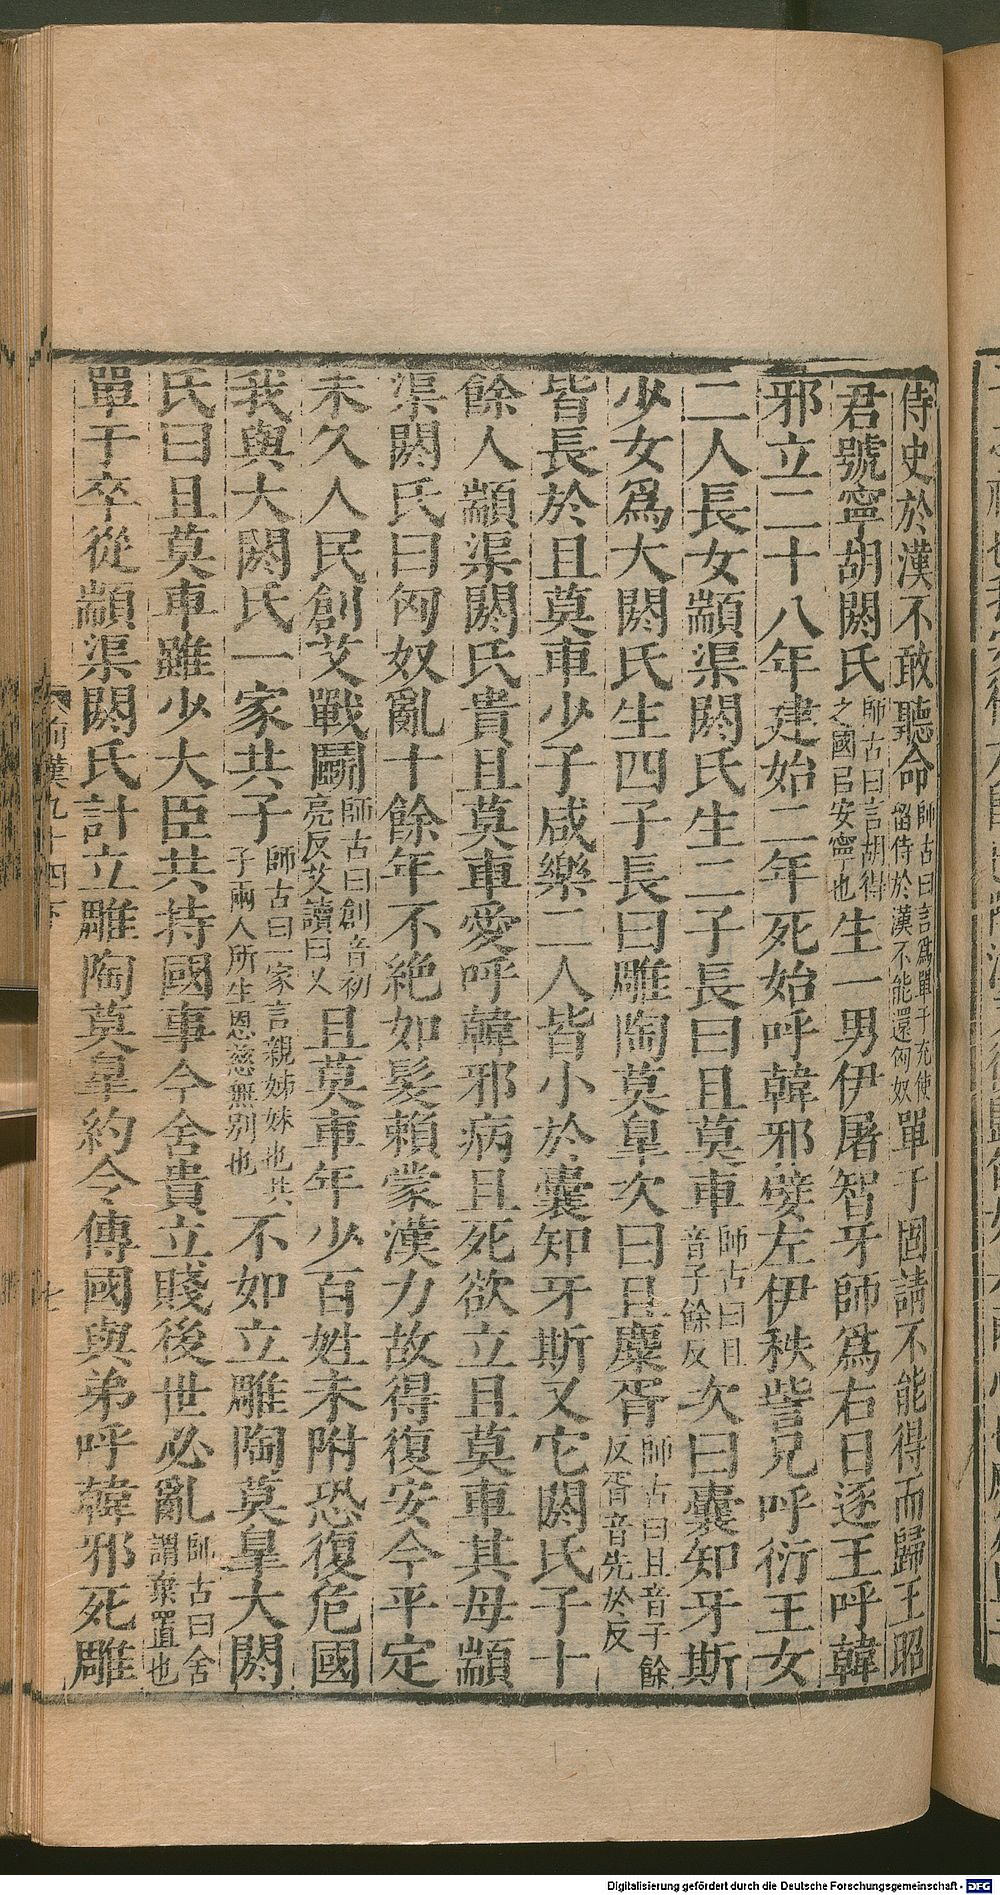 侍史於漢不敢聽命師古曰言爲單于充使留侍於漢不能還匈奴單于固請不能得而歸王昭
君號寧胡閼氏師古曰言胡得之國以安寧也生一男伊屠智牙師爲右日逐王呼韓
邪立二十八年建始二年死始呼韓邪嬖左伊秩訾兄呼衍王女
二人長女顓渠閼氏生二子長曰且莫車師古曰且音子餘反次曰囊知牙斯
少女爲大閼氏生四子長曰雕陶莫皐次曰且麋胥師古曰且音子餘反胥音先於反
皆長於且莫車少子咸樂二人皆小於囊知牙斯又它閼氏子十
餘人顓渠閼氏貴且莫車愛呼韓邪病且死欲立且莫車其母顓
渠閼氏曰匈奴亂十餘年不絶如髮賴蒙漢力故得復安今平定
未久人民創艾戰鬭師古曰創音初亮反艾讀曰乂且莫車年少百姓未附恐復危國
我與大閼氏一家共子師古曰一家言親姊妹也共子兩人所生恩慈無別也不如立雕陶莫皐大閼
氏曰且莫車雖少大臣共持國事今舍貴立賤後世必亂師古曰舍謂棄置也
單于卒從顓渠閼氏計立雕陶莫皐約令傳國與弟呼韓邪死雕
前漢九十四下
七
Digitalisierung gefördert durch die Deutsche Forschungsgemeinschaft - DFG